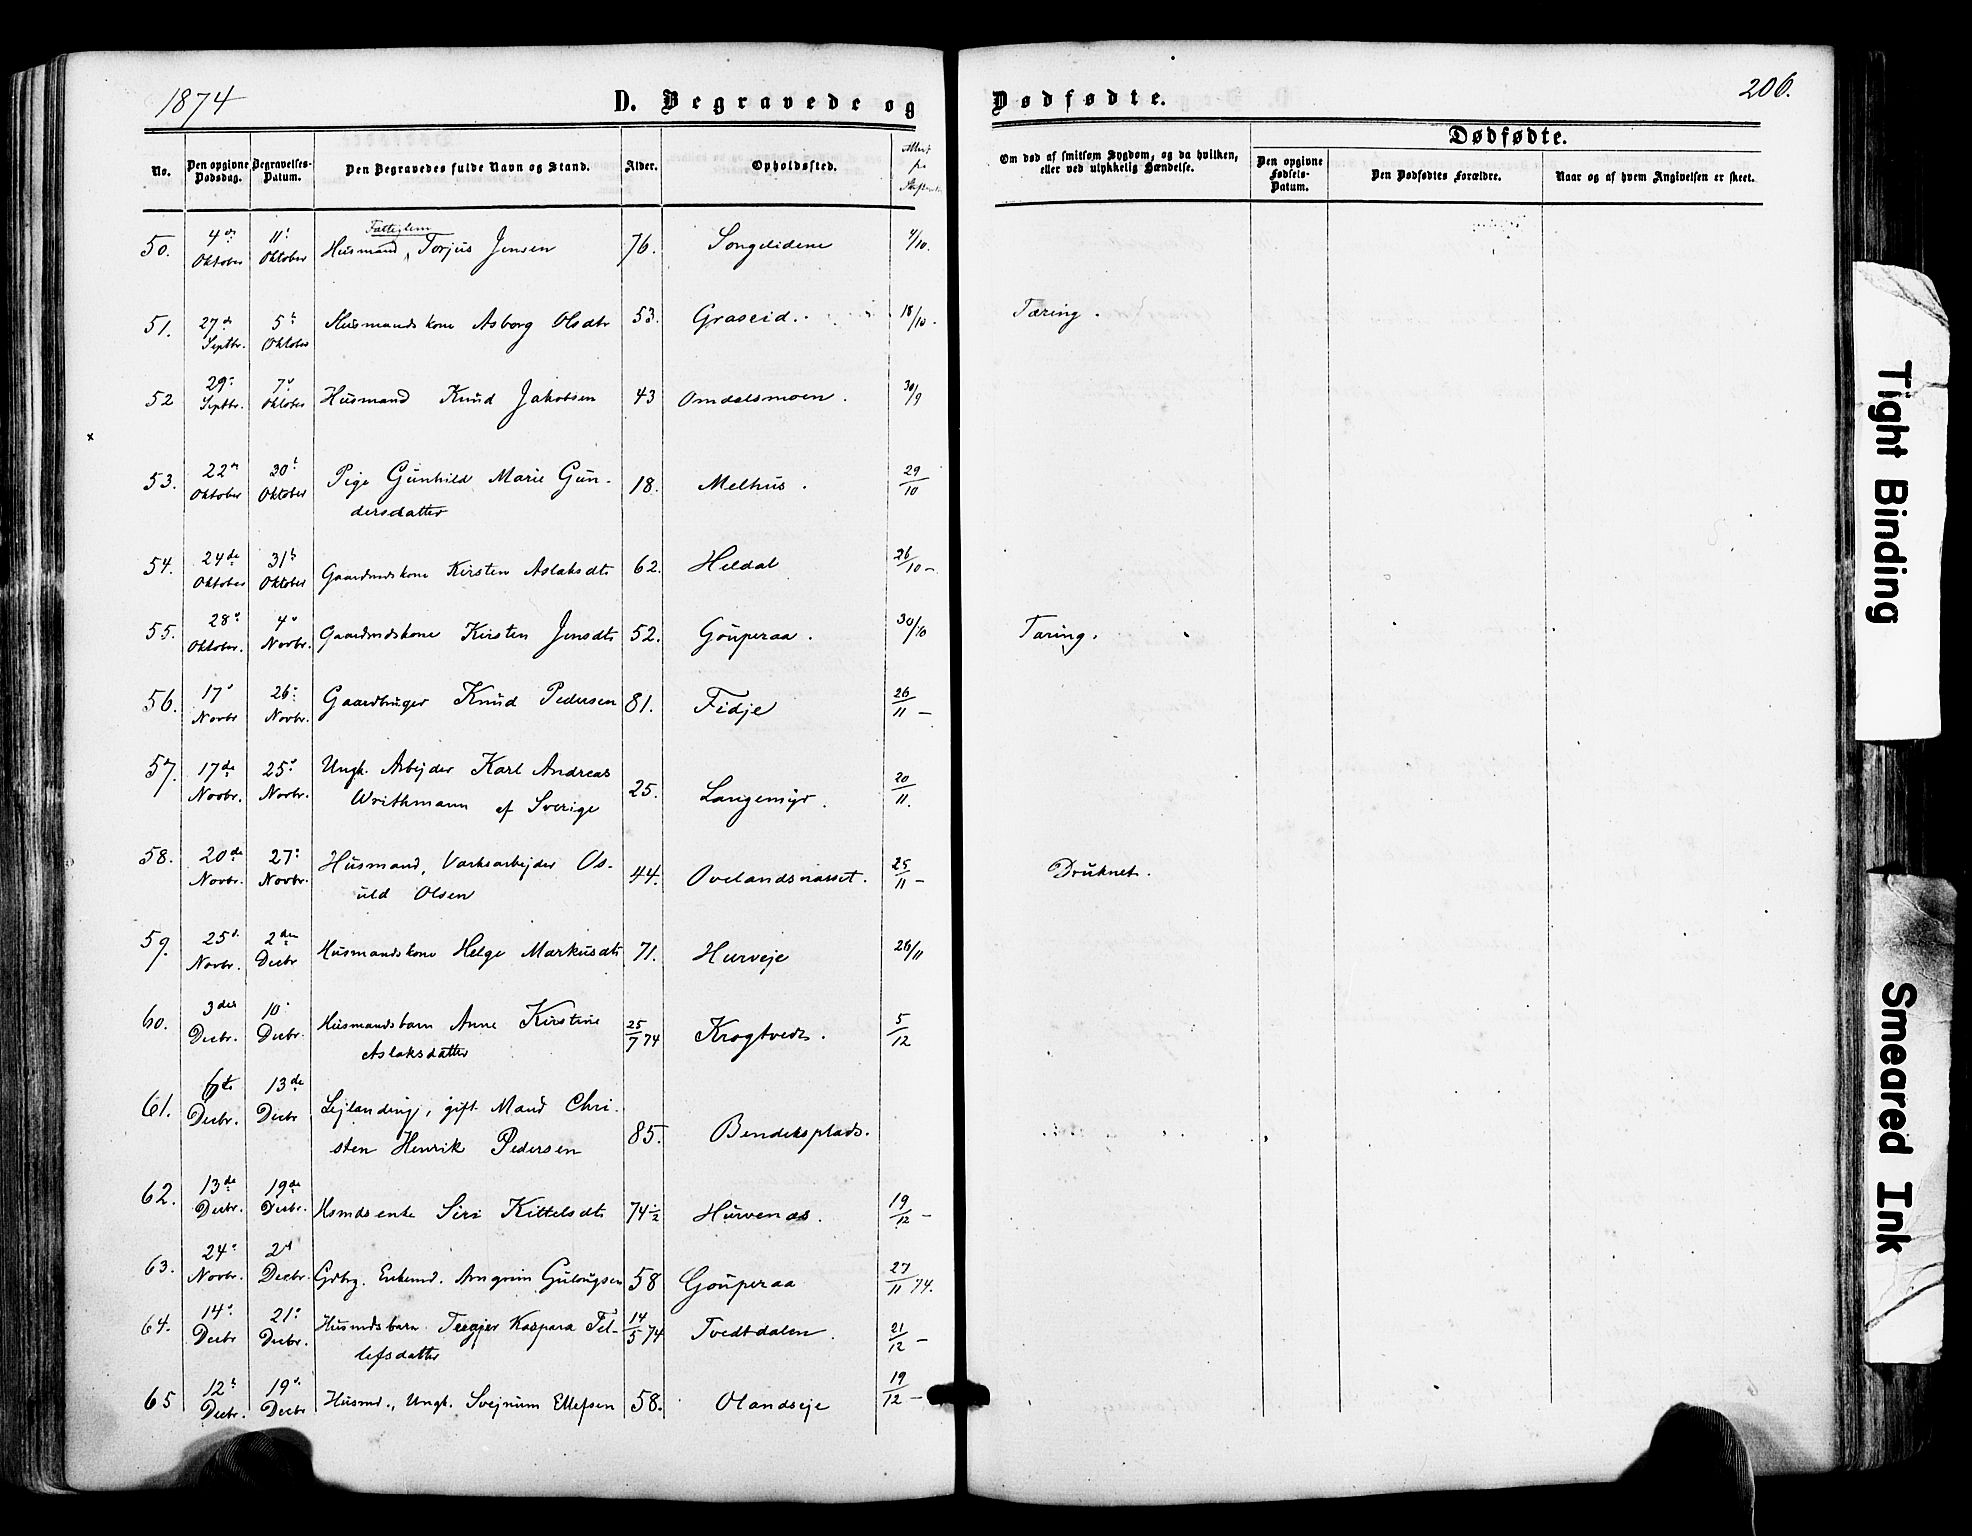 1874
D. Begravede og
Dødfødte.
206.
No.
Den opgivne Dødsdag.
Begravelses-Datum.
Den Begravedes fulde Navn og Stand.
Alder.
Opholdssted.
Om død af smitsom Sygdom, og da hvilken, eller ved ulykkelig Hændelse.
Dødfødte.
Den opgivne Fødsels-Datum.
Den Dødfødtes Forældre.
Naar og af hvem Angivelsen er skeet.
50. 4de Oktober 11t Oktober Husmand, Fattiglem Torjus Jensen 76. Songelidene 4/10.
51. 27de Septbr. 5t Oktober Husmandskone Asborg Olsdtr 53. Graseid. 18/10. Tæring.
52 29de Septbr. 7de Oktober Husmand Knud Jakobsen 43 Omdalsmoen. 30/9
53. 22de Oktober 30t Oktober Pige Gunhild Marie Gun-
dersdatter 18. Melhus. 29/10
54. 24de Oktober 31t Oktober Gaardmdskone Kirsten Aslaksdtr 62. Heldal 26/10 –
55. 28de Oktober. 4de Novbr. Gaardmdskone Kirsten Jensdtr 52. Gouperaa. 30/10 Tæring.
56. 17de Novbr 26de Novbr. Gaardbruger Knud Pedersen 81. Fidje 26/11 –
57. 17de Novbr. 25de Novbr. Ungk. Arbejder Karl Andreas
Writhmann af Sverige 25. Langemyr. 20/11.
58. 20de Novbr. 27de Novbr. Husmand, Værksarbejder Os-
uld Olsen 44. Ovelandsnæsset. 25/11 – Druknet.
59. 25de Novbr. 2den Decbr Husmandskone Helge Markusdtr 71. Hurveje 26/11
60. 3die Decbr. 10de Decbr. Husmandsbarn Anne Kirstine
Aslaksdatter 25/7 74 Krogtvedt. 5/12
61. 6te Decbr. 13de Decbr Lejlænding, gift Mand Chri-
sten Henrik Pedersen 85. Bendiksplads.
62. 13de Decbr. 19de Decbr. Hsmdsenke Siri Kittelsdtr 74½ Hurvenæs. 19/12 –
63. 24de Novbr. 2d Decbr. Gdbrg. Enkemd. Arngrim Gulaugsen 58 Gouperaa 27/11 74.
64. 14de Decbr 21de Decbr. Husmdsbarn Kaspara Tel-
lefsdatter 14/5 74 Tvedtdalen. 21/12 –
65 12t Decbr. 19de Decbr Husmd., Ungk. Svejnum Ellefsen 58. Olandseje 19/12 –
Tight Binding
Smeared Ink